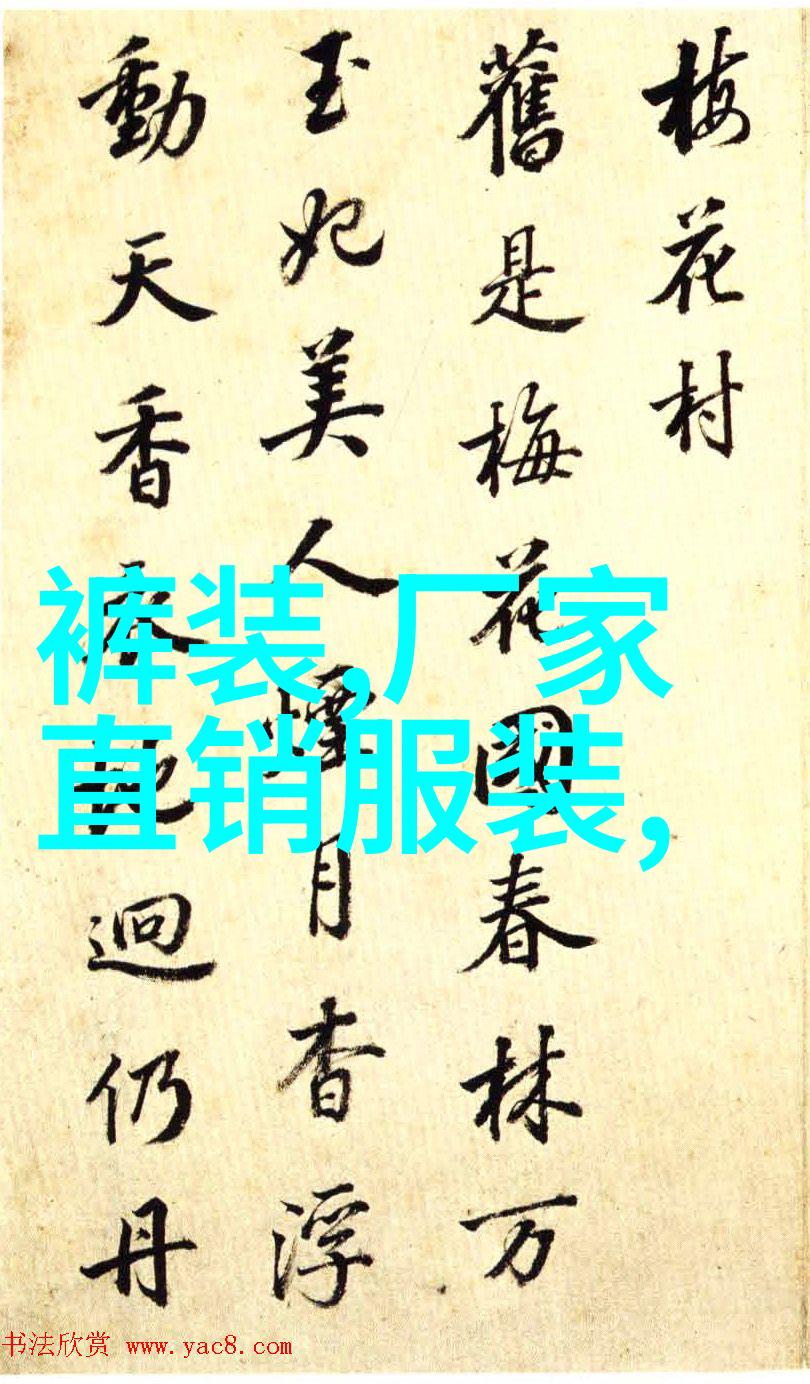 梅花村
舊是梅花國春林万
玉妃美人煙月杳浮
動天香春地迥仍丹
裤装,厂家
直销服装,
书法欣赏 www.yac8.com